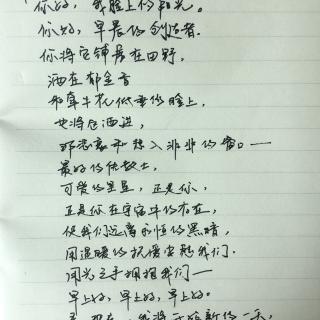 你好，我脸上的阳光。
你好，早晨的创造者。
你将它铺展在田野，
洒在郁金香
和牵牛花低垂的脸上，
也将它洒进，
那悲哀和想入非非的窗口——
最好的传教士，
可爱的星星，正是你，
正是你在宇宙中的存在，
使我们远离永恒的黑暗，
用温暖的抚摩安慰我们.
用光之手拥抱我们——
早上好，早上好，早上好。
我将开始新的一天，